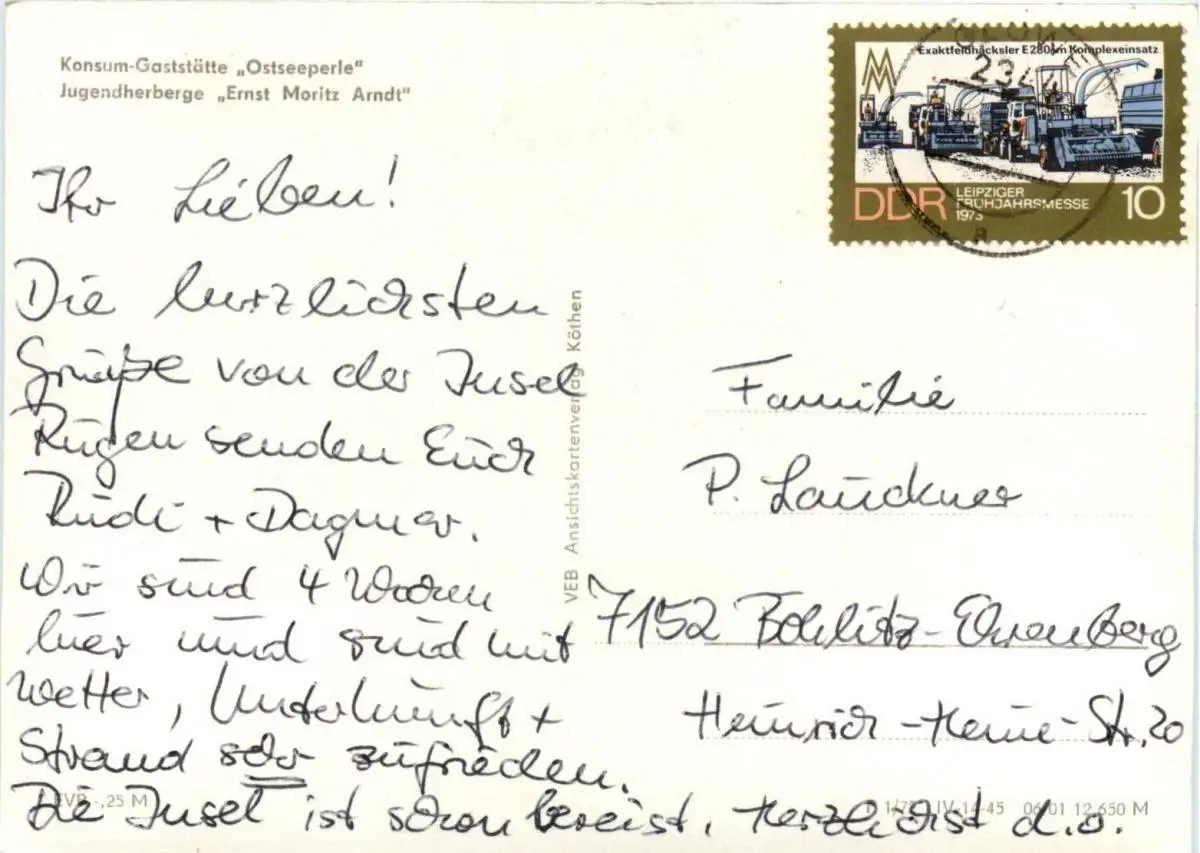 Konsum-Gaststätte „Ostseeperle“
Jugendherberge „Ernst Moritz Arndt“
Exaktfeldhäcksler E 280 im Komplexeinsatz
DDR
LEIPZIGER
FRÜHJAHRSMESSE
1973
10
Ihr Lieben!
Die herzlichsten
Grüße von der Insel
Rügen senden Euch
Rudi + Dagmar.
Wir sind 4 Wochen
hier und sind mit
Wetter, Unterkunft +
Strand sehr zufrieden.
Die Insel ist schon bereist. Herzlichst d.o.
VEB Ansichtskartenverlag Köthen
Familie
P. Lauckner
7152 Böhlitz-Ehrenberg
Heinrich-Heine-Str. 20
EVP -,25 M
IV-14-45 06 01 12 650 M